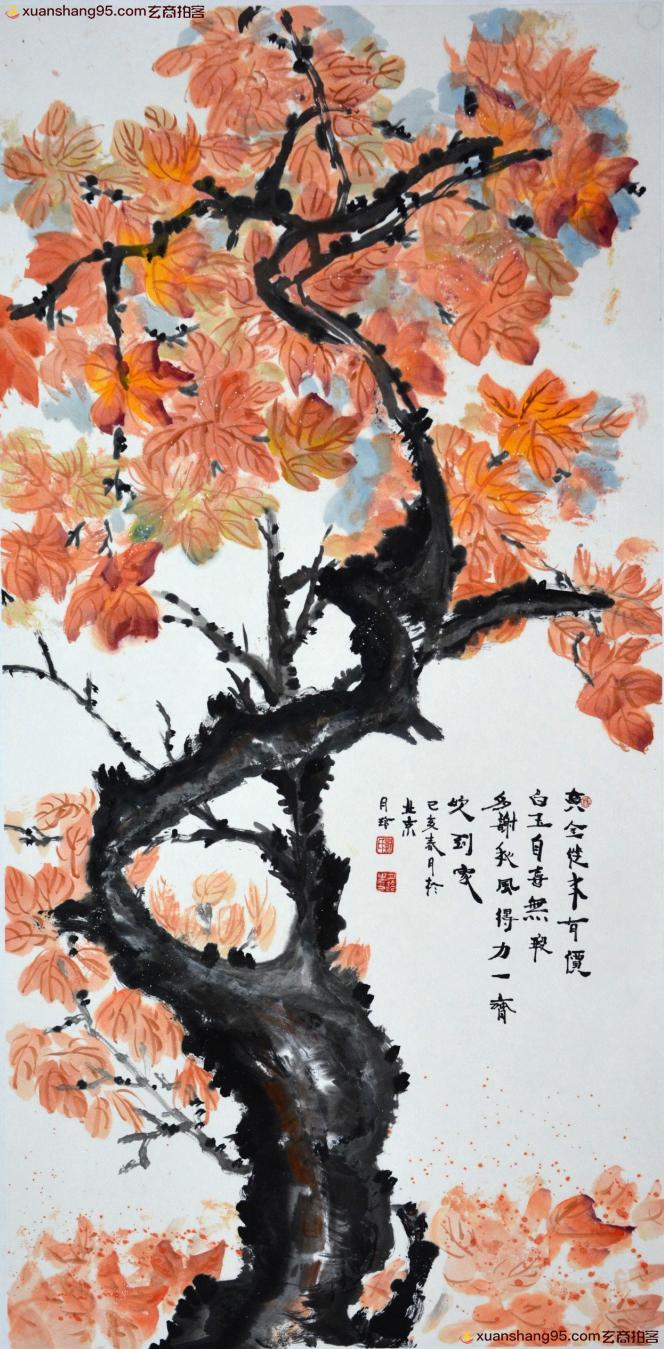 xuanshang95.com玄商拍客
真金從来有價
白玉自喜無瑕
多謝秋風得力一齊
吹到家
己亥春月於
北京
月玲
xuanshang95.com玄商拍客